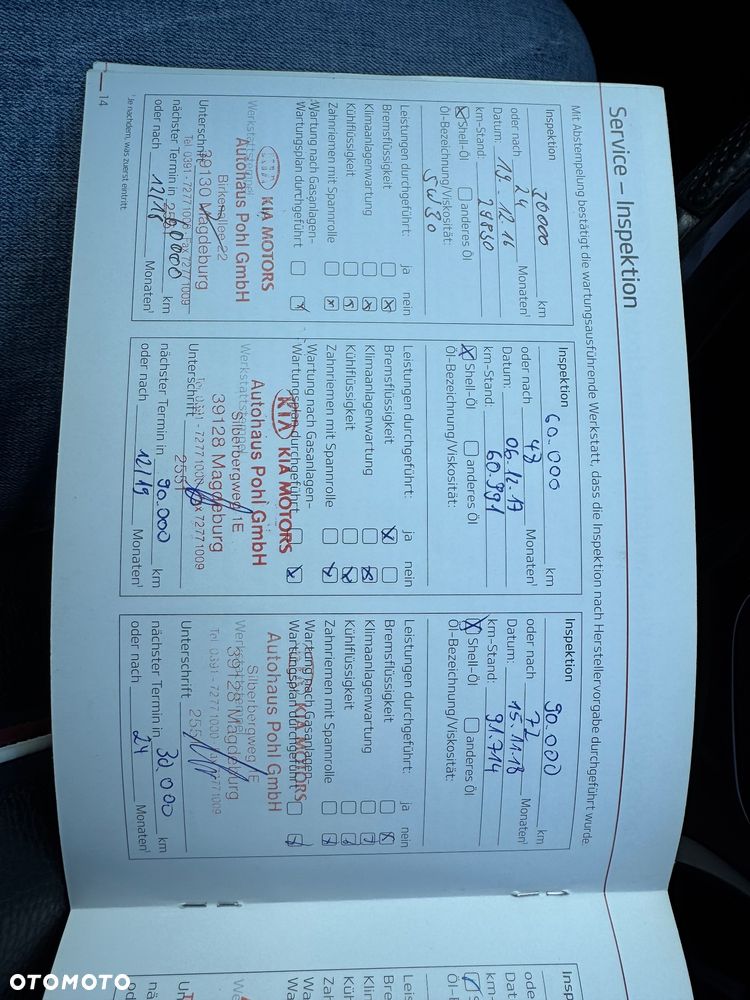 Service – Inspektion
Mit Abstempelung bestätigt die wartungsausführende Werkstatt, dass die Inspektion nach Herstellervorgabe durchgeführt wurde.
Inspektion
30000 km
oder nach 24 Monaten¹
Datum: 19.12.16
km-Stand: 29840
Shell-Öl anderes Öl
Öl-Bezeichnung/Viskosität:
5W30
Leistungen durchgeführt: ja nein
Bremsflüssigkeit
Klimaanlagenwartung
Kühlflüssigkeit
Zahnriemen mit Spannrolle
Wartung nach Gasanlagen-
Wartungsplan durchgeführt
KIA MOTORS
Autohaus Pohl GmbH
Birkenallee 22
39130 Magdeburg
Tel. 0391 - 72771000 Fax 72771009
Unterschrift
nächster Termin in 60000 km
oder nach 12/18 Monaten¹
Inspektion
60.000 km
oder nach 48 Monaten¹
Datum: 06.12.17
km-Stand: 60.991
Shell-Öl anderes Öl
Öl-Bezeichnung/Viskosität:
Leistungen durchgeführt: ja nein
Bremsflüssigkeit
Klimaanlagenwartung
Kühlflüssigkeit
Zahnriemen mit Spannrolle
Wartung nach Gasanlagen-
Wartungsplan durchgeführt
KIA KIA MOTORS
Autohaus Pohl GmbH
Werkstattstempel
Silberbergweg 1E
39128 Magdeburg
Tel. 0391 - 72771000 Fax 72771009
Unterschrift 2551
nächster Termin in 90.000 km
oder nach 12/19 Monaten¹
Inspektion
90.000 km
oder nach 72 Monaten¹
Datum: 15.11.18
km-Stand: 91.714
Shell-Öl anderes Öl
Öl-Bezeichnung/Viskosität:
Leistungen durchgeführt: ja nein
Bremsflüssigkeit
Klimaanlagenwartung
Kühlflüssigkeit
Zahnriemen mit Spannrolle
Wartung nach Gasanlagen-
Wartungsplan durchgeführt
KIA MOTORS
Autohaus Pohl GmbH
Silberbergweg 1E
39128 Magdeburg
Tel. 0391 - 72771000 Fax 72771009
Unterschrift
nächster Termin in 30.000 km
oder nach 24 Monaten¹
¹ Je nachdem was zuerst eintritt
14
OTOMOTO